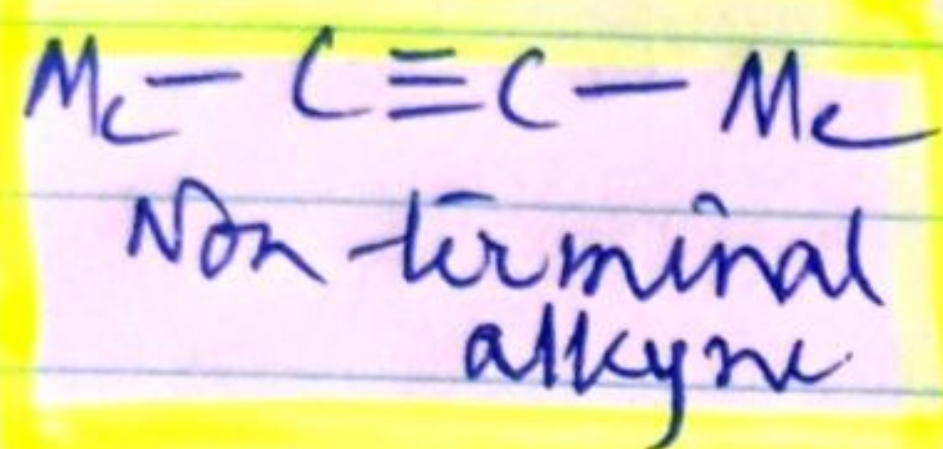 Me - C ≡ C - Me
Non terminal
alkyne